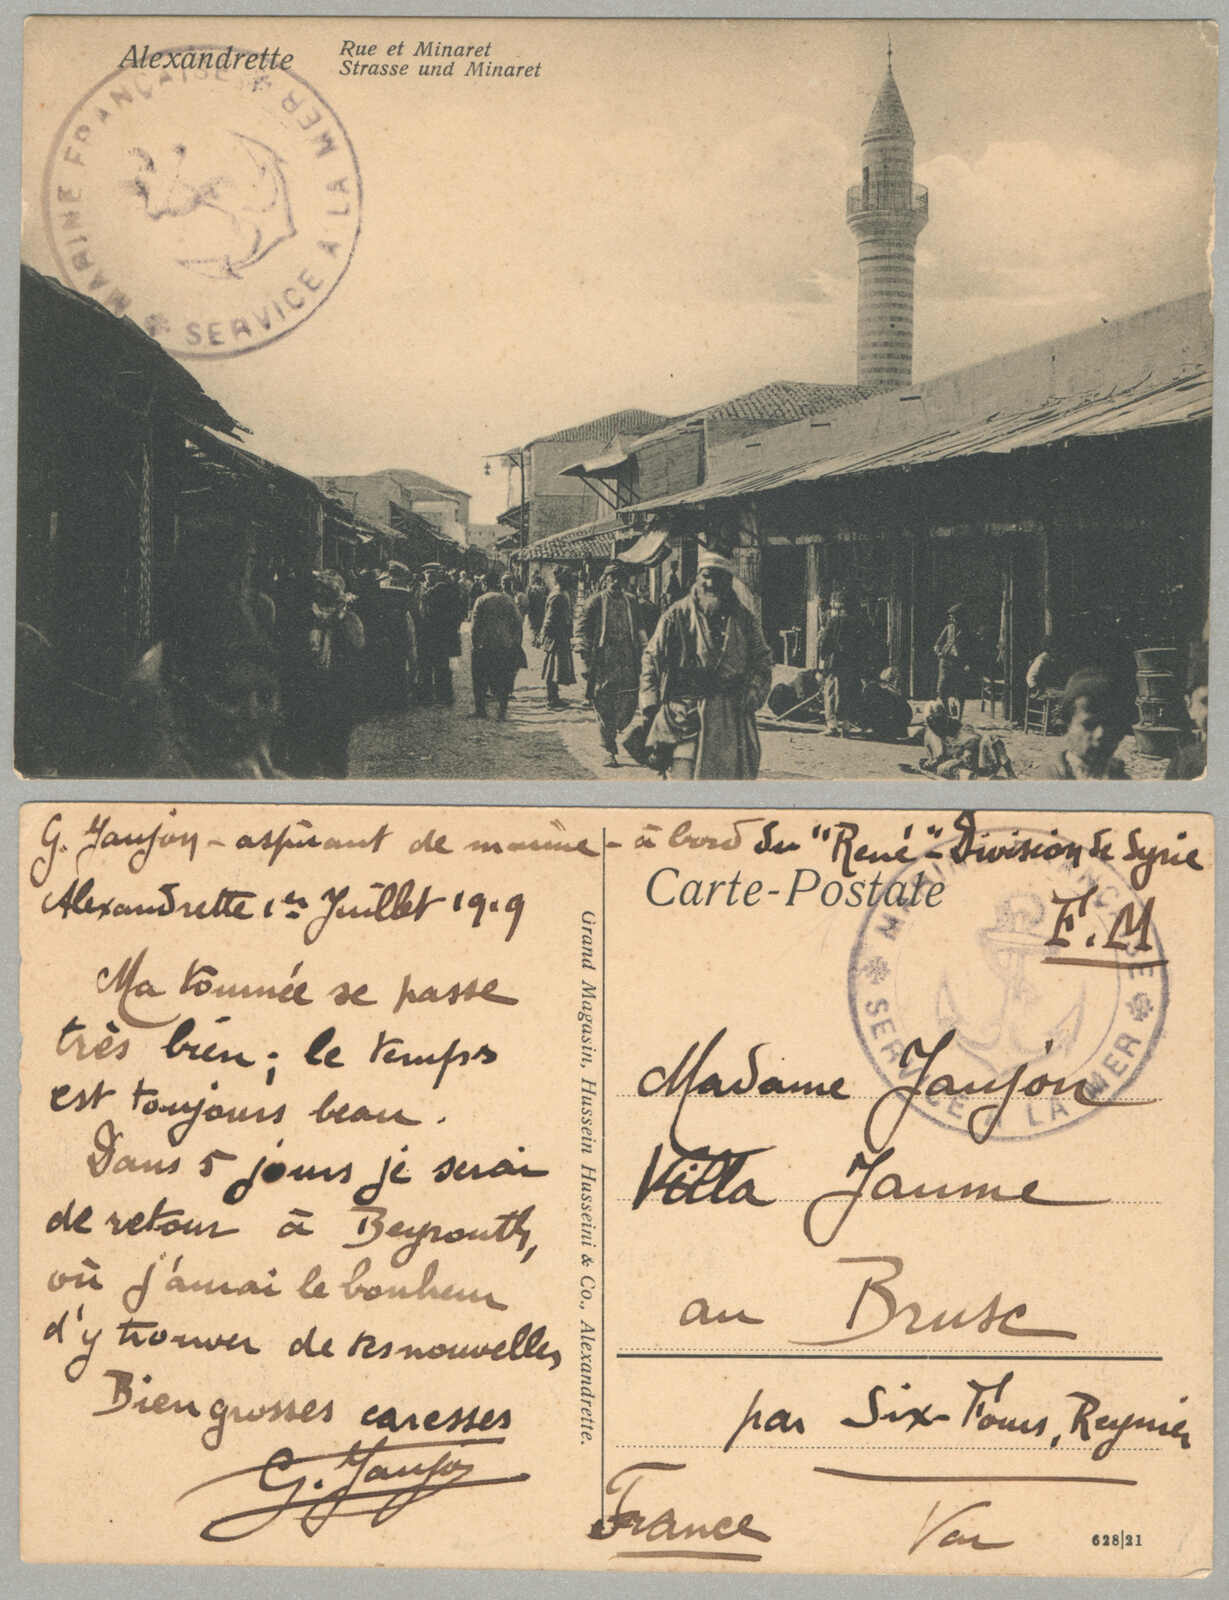 Alexandrette
Rue et Minaret
Strasse und Minaret
MARINE FRANÇAISE
SERVICE A LA MER
G. Jaujon - aspirant de marine - à bord du "René" - Division de Syrie
Alexandrette 1er Juillet 1919
Ma tournée se passe
très bien ; le temps
est toujours beau.
Dans 5 jours je serai
de retour à Beyrouth,
où j'aurai le bonheur
d'y trouver de tes nouvelles
Bien grosses caresses
G. Jaujon
Grand Magasin, Hussein Husseini & Co., Alexandrette.
Carte-Postale
F.M
MARINE FRANÇAISE
SERVICE A LA MER
Madame Jaujon
Villa Jaume
au Brusc
par Six-Fours, Reynier
France Var
628|21